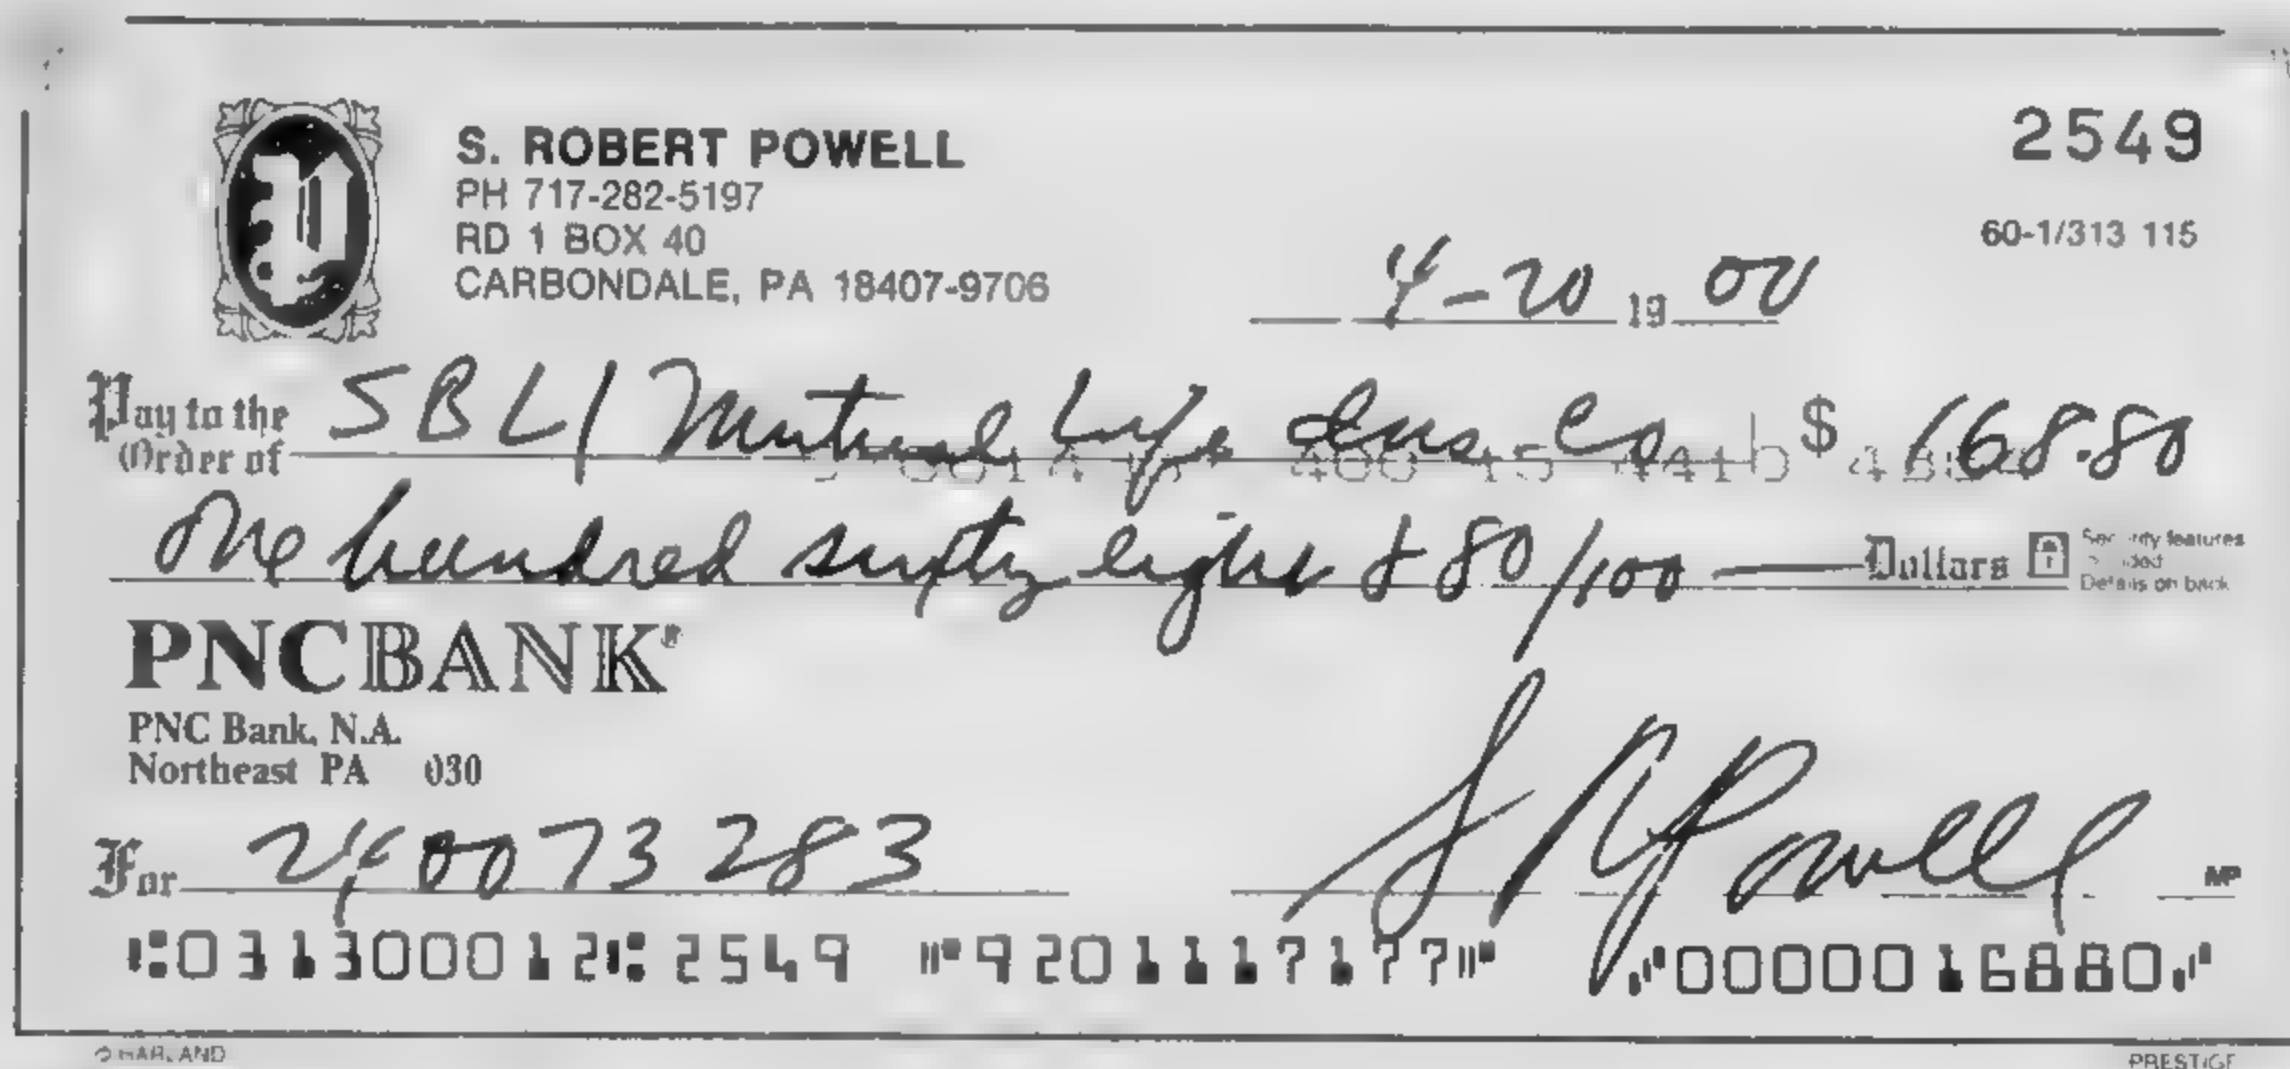 S. ROBERT POWELL
PH 717-282-5197
RD 1 BOX 40
CARBONDALE, PA 18407-9706
2549
60-1/313 115
4-20 19 00
Pay to the Order of SBLI Mutual Life Ins. Co $ 168.80
One hundred sixty eight & 80/100 Dollars
Security features
Details on back
PNCBANK
PNC Bank, N.A.
Northeast PA 030
For 240073283
S R Powell MP
⑆031300012⑆ 2549 ⑈9201117177⑈ ⑇0000016880⑇
HARLAND
PRESTIGE